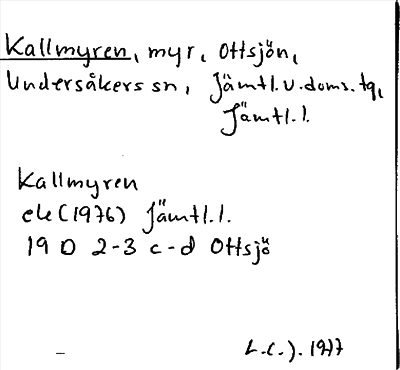 Kallmyren, myr, Ottsjön,
Undersåkers sn, Jämtl.v.doms.tg,
Jämtl.l.
Kallmyren
ek (1976) Jämtl.l.
19 D 2-3 c-d Ottsjö
L.C.J. 1977